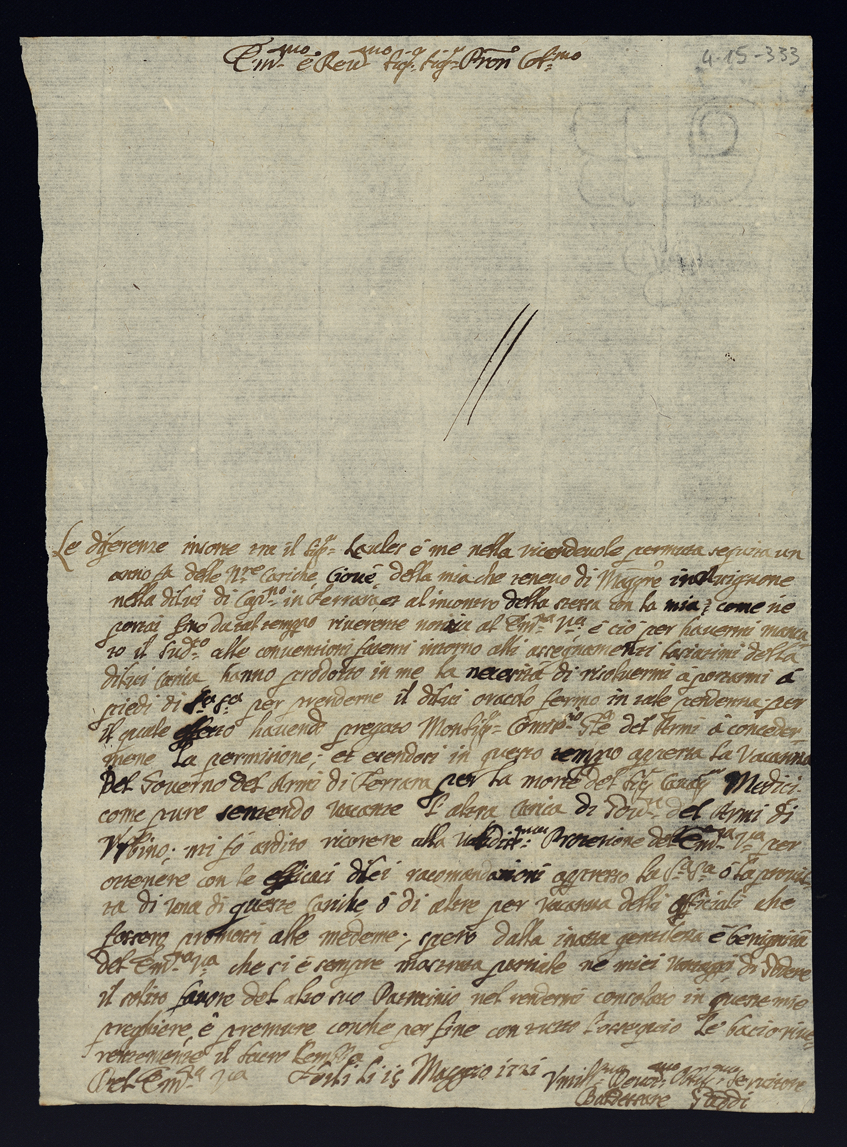 4-15-333
Em.mo e Reu.mo Sig.r Sig.r Pron Col.mo
Le diferenze insorte tra il Sig.r Laules è me nella vicendevole permuta seguita un
anno fà delle N.re Cariche, Cioué, della mia che tenevo di Magg.re in
nella di lui di Cap.no in Ferrara, et al incontro della stessa con la mia; come ne
portai fino da tal tempo riverente notizia al Em.za V.ra è ciò per havermi manca
to il Sud.to alle conventioni fatemi intorno alli assegnamenti lasciatimi della
di lui Carica hanno prodotto in me la necesità di risoluermi à portarmi à
piedi di per prenderne il di lui oracolo fermo in tale pendenza, per
il quale effetto havendo pregato Monsig.r Comis.rio del Armi à conceder
mene la permisione; et esendosi in questo tempo aperta la Vacanza
del Governo del Armi di Ferrara per la morte del Sig.r Medici
come pure sentendo vacante l'altra Carica di del Armi di
Vrbino; mi fò ardito ricorere alla Protezione del Em.za V.ra per
ottenere con le efficaci di lei racomandazioni appresso la ò la provis
ta di una di queste Cariche, ò di altre per vacanza delli officiali che
fossero promossi alle medeme; spero dalla inata gentileza è benignità
del Em.za V.ra che si è sempre mostrata parziale ne miei vantaggi, di godere
il solito favore del alto suo Patrocinio nel rendermi consolato in queste mie
preghiere, è premure con che per fine con tutto l'ossequio le bacio riue
rentemente il sacro lembo
Del Em.za V.ra Forlì li 15 Maggio 1721 Vmil.mo Deuot.mo Obl.mo Seruitore
Baldessare Gaddi